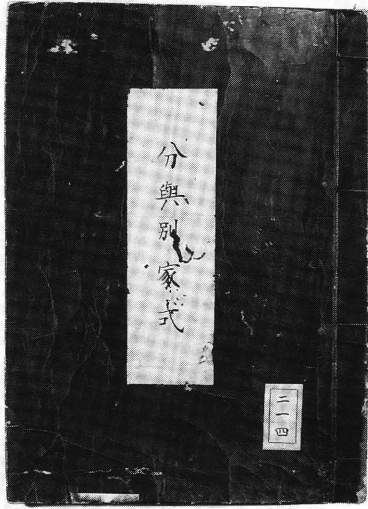 分與別家式
二一四